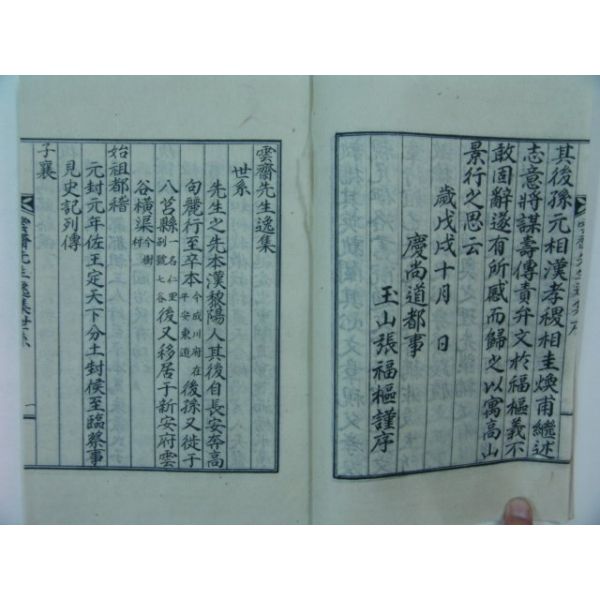 其後孫元相漢孝稷相圭煥甫繼述
志意將謀壽傳責弁文於福樞義不
敢固辭遂有所感而歸之以寓高山
景行之思云
歲戊戌十月　日
慶尙道都事
玉山張福樞謹序
雲齋先生逸集
世系
先生之先本漢黎陽人其後自長安奔高
句麗行至卒本今成川府在平安東道後孫又徙于
八莒縣一名仁里別號七谷後又移居于新安府雲
谷橫渠今樹村
始祖都稽
元封元年佐王定天下分土封侯至臨蔡事
見史記列傳
子襄
雲齋先生逸集世系
一